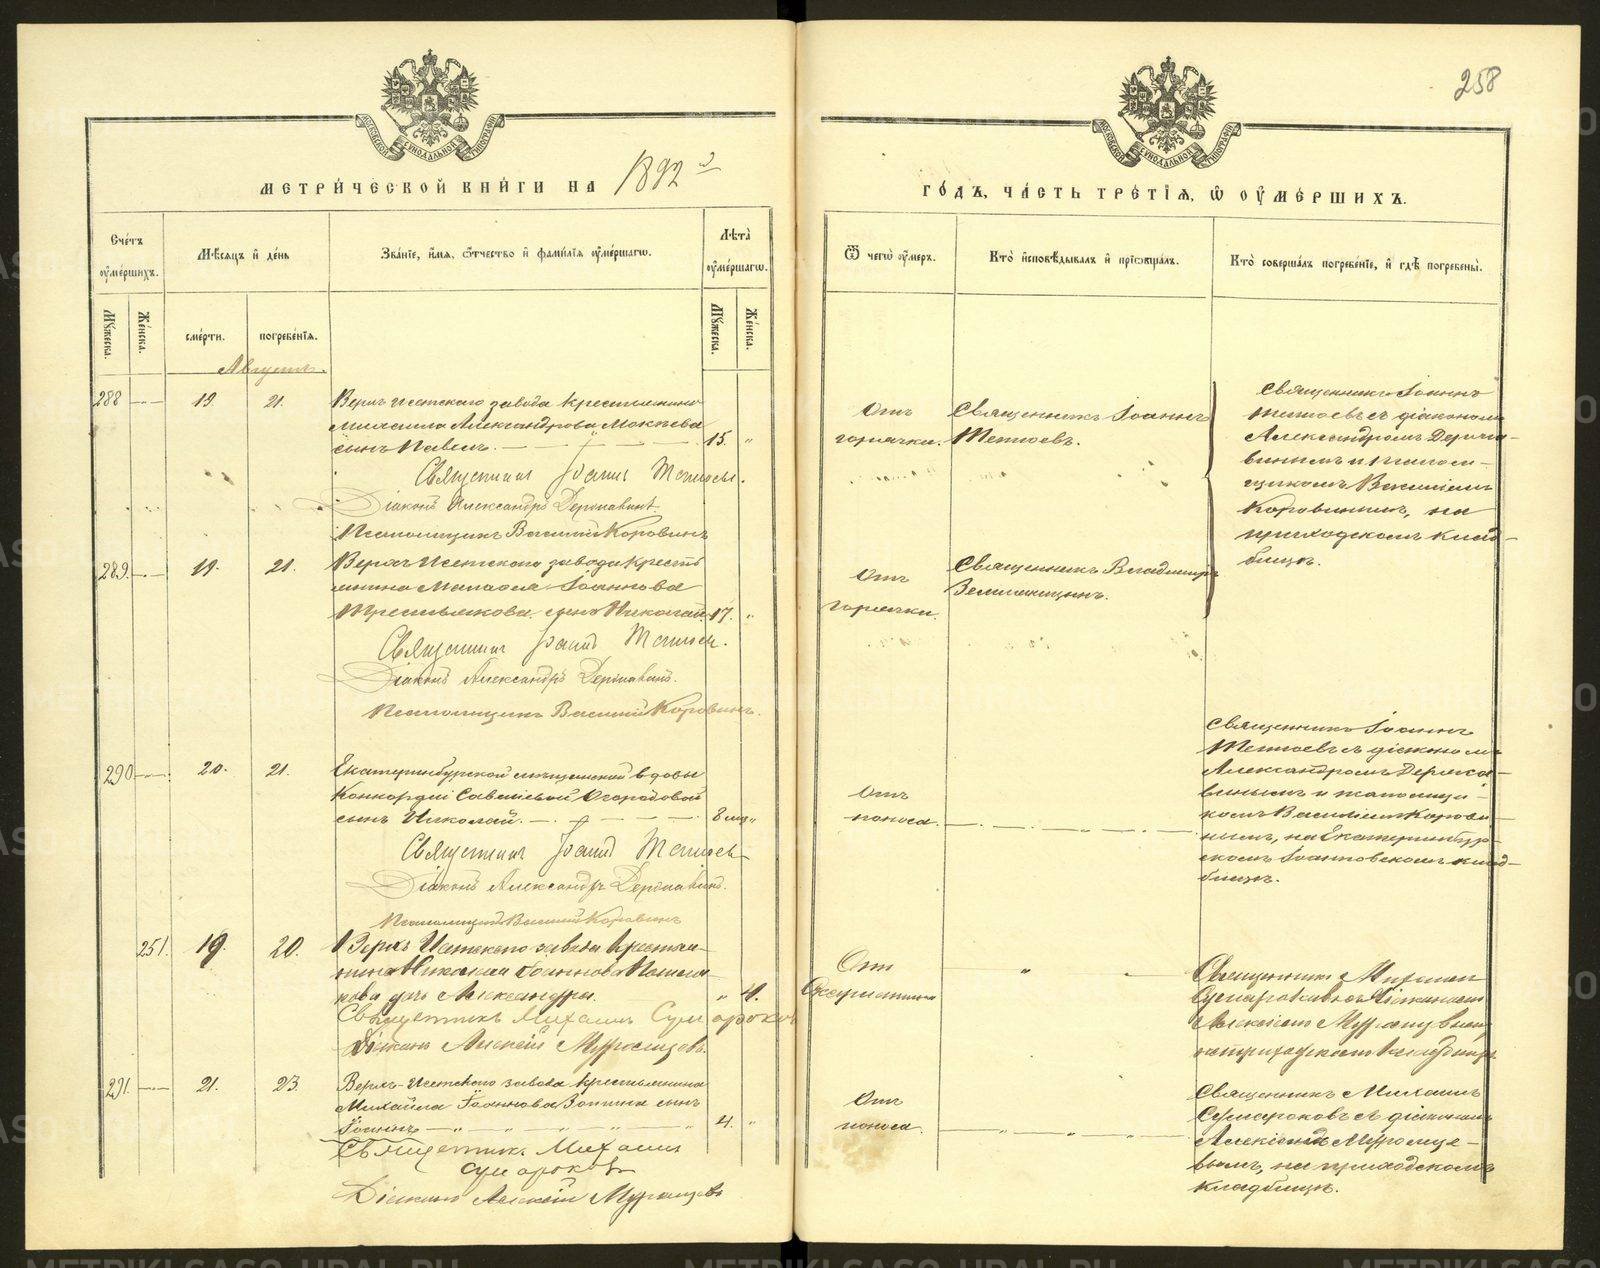 258
МЕТРИ́ЧЕСКОЙ КНИ́ГИ НА 1892 й
ГО́ДЪ, ЧА́СТЬ ТРЕ́ТІЯ, Ѽ ОУ҆МЕ́РШИХЪ.
Сче́тъ оу҆ме́ршихъ.
Мѣ́сяцъ и҆ де́нь
Зва́ніе, и҆́мя, ѻ҆́тчество и҆ фами́лія оу҆ме́ршагѡ.
Лѣ́та оу҆ме́ршагѡ.
Ѿ чегѡ̀ оу҆́меръ.
Кто̀ и҆сповѣ́дывалъ и҆ прїѡбща́лъ.
Кто̀ соверша́лъ погребе́ніе, и҆ гдѣ̀ погребены̀.
Мꙋ́жеска.
Же́нска.
сме́рти.
погребе́нія.
Мꙋ́жеска.
Же́нска.
Августъ.
288 — 19. 21.
Верхъ Исетскаго завода крестьянина
Михаила Александрова Мокѣева
сынъ Павелъ. 15. "
Священник Іоанн Тетюев.
Діаконъ Александръ Державинъ.
Псаломщикъ Василій Коровинъ
Отъ
горячки.
Священникъ Іоаннъ
Тетюевъ.
Священникъ Іоаннъ
Тетюевъ съ діакономъ
Александромъ Держа-
винымъ и псалом-
щикомъ Василіемъ
Коровинымъ, на
приходскомъ клад-
бищѣ.
289. — 19. 21.
Верхъ Исетскаго завода кресть
янина Матвея Іоаннова
Третьякова сынъ Николай 17. "
Священник Іоаннъ Тетюев.
Діаконъ Александръ Державинъ.
Псаломщикъ Василій Коровинъ.
Отъ
горячки.
Священникъ Владиміръ
Земляницынъ.
290 — 20. 21.
Екатеринбургской мѣщанской вдовы
Конкордіи Савеліевой Огородовой
сынъ Николай. 8 мц. "
Священник Іоаннъ Тетюев
Діаконъ Александръ Державинъ.
Псаломщикъ Василій Коровинъ
Отъ
поноса.
Священникъ Іоаннъ
Тетюевъ съ діакономъ
Александромъ Держа-
винымъ и псаломщи-
комъ Василіемъ Корови-
нымъ, на Екатеринбург-
скомъ Іоанновскомъ клад-
бищѣ.
251. 19. 20.
Верхъ Исетскаго завода крестья-
нина Николая Іоаннова
дочь Александра. " 4.
Священникъ Михаилъ Сумароков
Діаконъ Алексій Муромцевъ.
Отъ
Священникъ Михаил
Сумароковъ съ діакономъ
Алексіемъ Муромцевым
на приходскомъ кладбищѣ
291. — 21. 23.
Верхъ-Исетскаго завода крестьянина
Михаила Іоаннова сынъ
Іоаннъ 4. "
Священник Михаилъ
Сумароковъ
Діаконъ Алексій Муромцевъ
Отъ
поноса.
Священникъ Михаилъ
Сумароковъ съ діакономъ
Алексіемъ Муромце-
вымъ, на приходскомъ
кладбищѣ.
METRIKI.SASO-URAL.RU